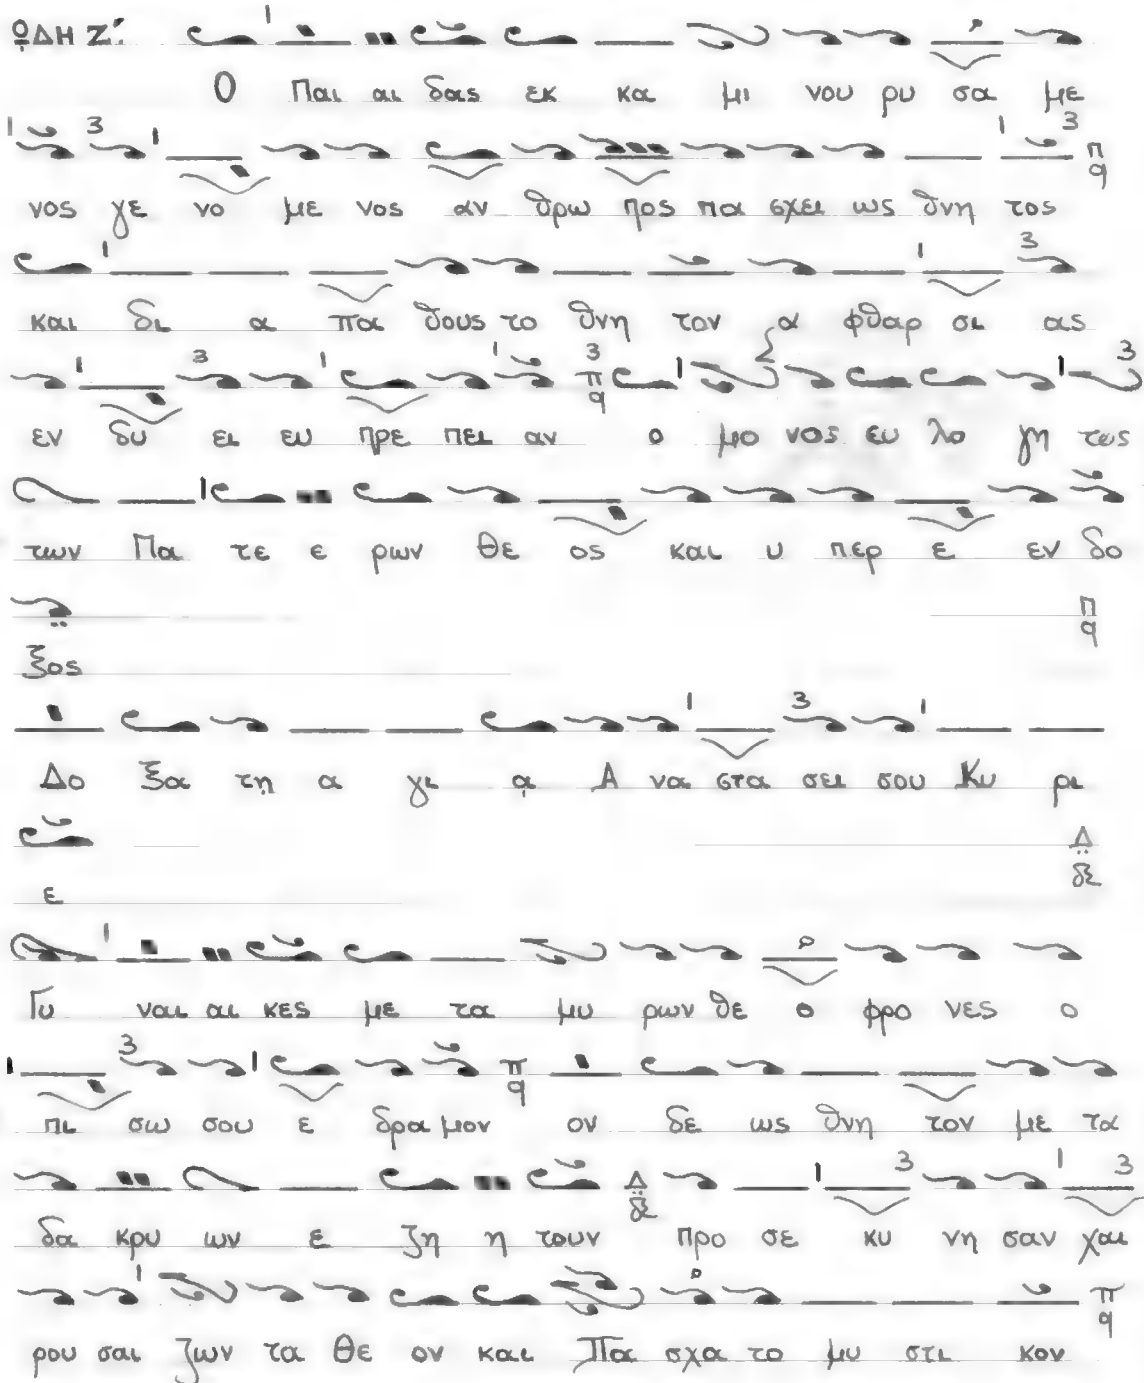 ῼΔΗ Ζ΄.
Ο Παι αι δας εκ κα μι νου ρυ σα με
νος γε νο με νος αν θρω πος πα σχει ως θνη τος
και δι α πα θους το θνη τον α φθαρ σι ας
εν δυ ει ευ πρε πει αν ο μο νος ευ λο γη τος
των Πα τε ε ρων Θε ος και υ περ ε εν δο
ξος
Δο ξα τῃ α γι ᾳ Α να στα σει σου Κυ ρι
ε
Γυ ναι αι κες με τα μυ ρων θε ο φρο νες ο
πι σω σου ε δρα μον ον δε ως θνη τον με τα
δα κρυ ων ε ζη η τουν προ σε κυ νη σαν χαι
ρου σαι ζων τα Θε ον και Πα σχα το μυ στι κον